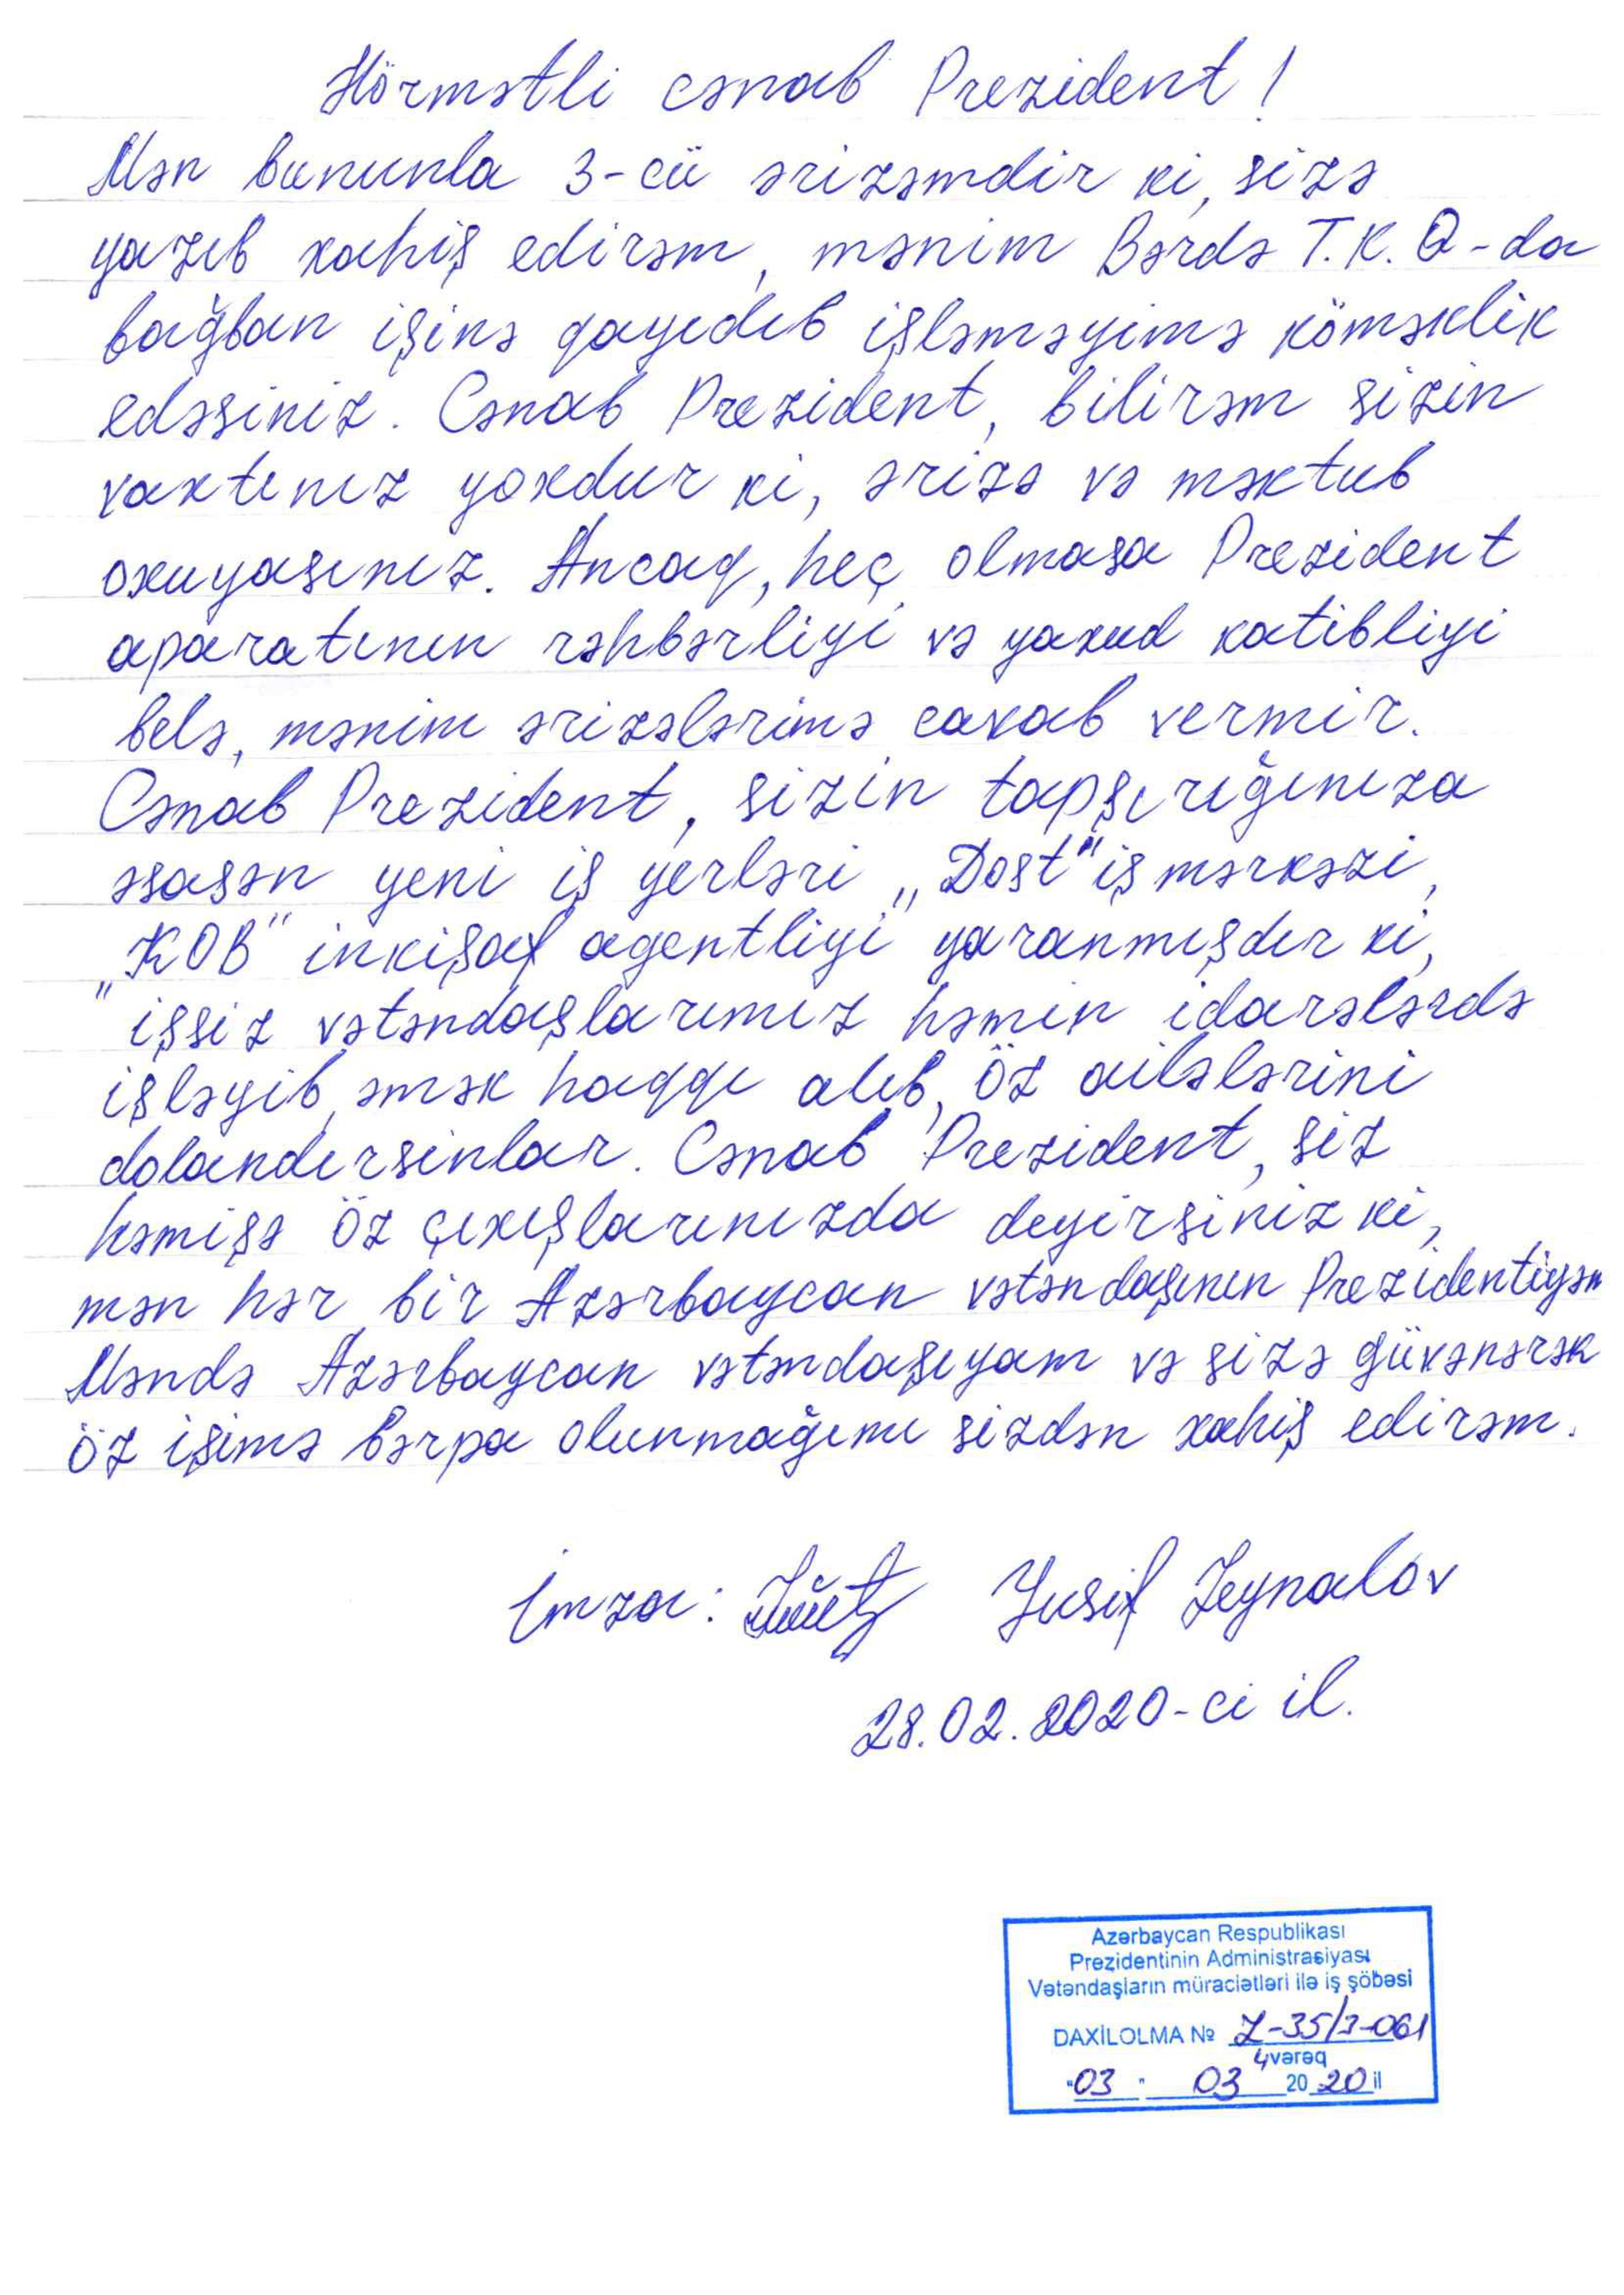 Hörmətli cənab Prezident!
Mən bununla 3-cü ərizəmdir ki, sizə
yazıb xahiş edirəm, mənim Bərdə T.K.Q-da
bağban işinə qayıdıb işləməyimə köməklik
edəsiniz. Cənab Prezident, bilirəm sizin
vaxtınız yoxdur ki, ərizə və məktub
oxuyasınız. Ancaq, heç olmasa Prezident
aparatının rəhbərliyi və yaxud katibliyi
belə, mənim ərizələrimə cavab vermir.
Cənab Prezident, sizin tapşırığınıza
əsasən yeni iş yerləri „Dost" iş mərkəzi,
„KOB" inkişaf agentliyi yaranmışdır ki,
işsiz vətəndaşlarımız həmin idarələrdə
işləyib, əmək haqqı alıb, öz ailələrini
dolandırsınlar. Cənab Prezident, siz
həmişə öz çıxışlarınızda deyirsiniz ki,
mən hər bir Azərbaycan vətəndaşının Prezidentiyəm
Məndə Azərbaycan vətəndaşıyam və sizə güvənərək
öz işimə bərpa olunmağımı sizdən xahiş edirəm.
İmza: Yusif Zeynalov
28.02.2020-ci il.
Azərbaycan Respublikası
Prezidentinin Administrasiyası
Vətəndaşların müraciətləri ilə iş şöbəsi
DAXİLOLMA № Z-35/3-061
4 vərəq
"03" 03 2020 il